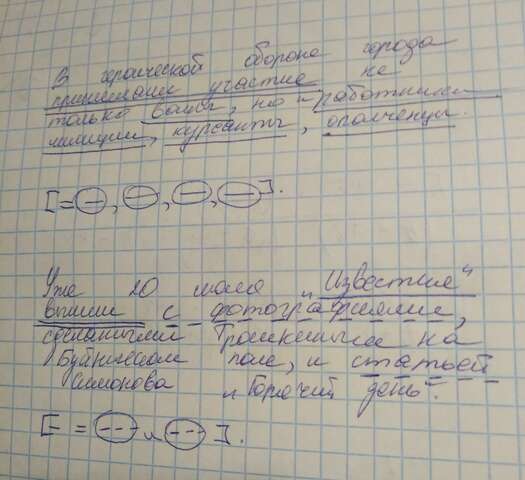 В героической обороне города
принимали участие не
только бойцы, но и работники
милиции, курсанты, ополченцы.
[= ⊖, ⊖, ⊖, ⊖].
Уже 20 июля „Известия"
вышли с фотографиями,
сделанными Трошкиным на
Буйничском поле, и статьей
Симонова „Горячий день".
[- = (---) и (---)].